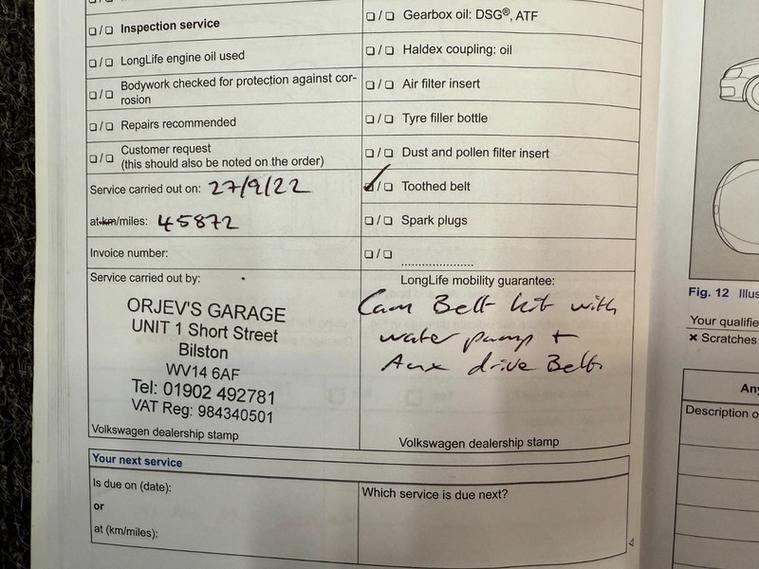 ☐ / ☐ Inspection service
☐ / ☐ LongLife engine oil used
☐ / ☐ Bodywork checked for protection against cor-
rosion
☐ / ☐ Repairs recommended
☐ / ☐ Customer request
(this should also be noted on the order)
Service carried out on: 27/9/22
at km/miles: 45872
Invoice number:
Service carried out by:
ORJEV'S GARAGE
UNIT 1 Short Street
Bilston
WV14 6AF
Tel: 01902 492781
VAT Reg: 984340501
Volkswagen dealership stamp
☐ / ☐ Gearbox oil: DSG®, ATF
☐ / ☐ Haldex coupling: oil
☐ / ☐ Air filter insert
☐ / ☐ Tyre filler bottle
☐ / ☐ Dust and pollen filter insert
☑ / ☐ Toothed belt
☐ / ☐ Spark plugs
☐ / ☐ ....................
LongLife mobility guarantee:
Cam Belt kit with
water pump +
Aux drive Belt.
Volkswagen dealership stamp
Your next service
Is due on (date):
or
at (km/miles):
Which service is due next?
Fig. 12
Your
× Scratches
Description